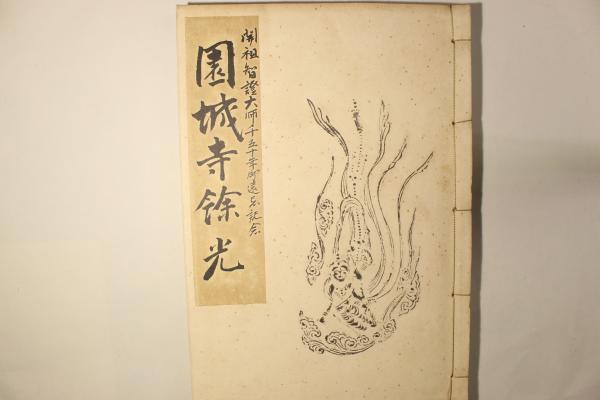 開祖智證大師千五十年御遠忌記念
園城寺餘光